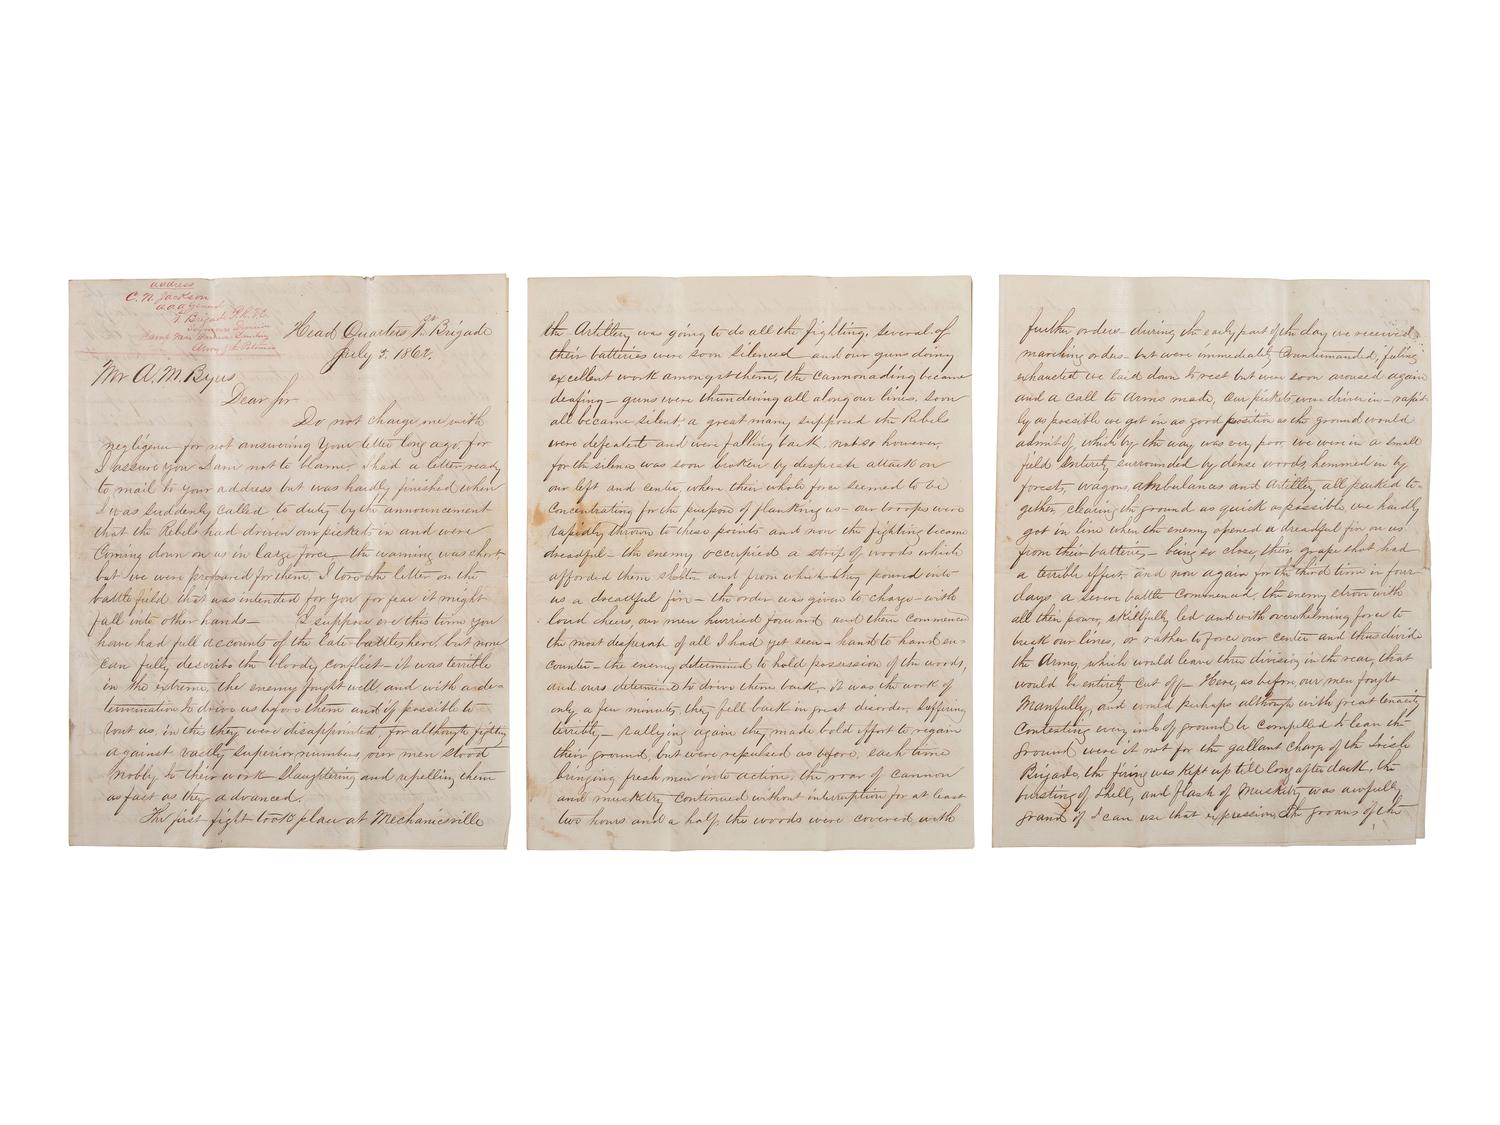 address
C. N. Jackson
A.A.A. General
1st Brigade P.R.V.C.
Seymours Division
Camp near Harrisons Landing
Army of the Potomac
Head Quarters 1st Brigade
July 5, 1862.
Mr A. M. Byers
Dear sir
Do not charge me with
negligence for not answering your letter long ago, for
I assure you I am not to blame, I had a letter ready
to mail to your address but was hardly finished when
I was suddenly called to duty, by the announcement
that the Rebels had driven our pickets in and were
coming down on us in large force — the warning was short
but we were prepared for them, I tore the letter on the
battle field that was intended for you for fear it might
fall into other hands — I suppose ere this time you
have had full accounts of the late battles here, but none
can fully describe the bloody conflict — it was terrible
in the extreme, the enemy fought well and with a de-
termination to drive us before them and if possible to
rout us, in this they were disappointed, for although fighting
against vastly superior numbers, our men stood
nobly to their work — slaughtering and repelling them
as fast as they advanced.
The first fight took place at Mechanicsville
the Artillery was going to do all the fighting, several of
their batteries were soon silenced and our guns doing
excellent work amongst them, the cannonading became
deafing — guns were thundering all along our lines. soon
all became silent, a great many supposed the Rebels
were defeated and were falling back, not so however,
for the silence was soon broken by desperate attack on
our left and center, where their whole force seemed to be
concentrating for the purpose of flanking us — our troops were
rapidly thrown to these points and now the fighting became
dreadful — the enemy occupied a strip of woods which
afforded them shelter and from which they poured into
us a dreadful fire — the order was given to charge — with
loud cheers, our men hurried forward and then commenced
the most desperate of all I had yet seen — hand to hand en-
counter — the enemy determined to hold possession of the woods,
and ours determined to drive them back, it was the work of
only a few minutes, they fell back in great disorder, suffering
terribly — rallying again they made bold effort to regain
their ground, but were repulsed as before, each time
bringing fresh men into action, the roar of cannon
and musketry continued without interruption for at least
two hours and a half, the woods were covered with
further orders — during the early part of the day we received
marching orders — but were immediately countermanded, feeling
exhausted we laid down to rest but were soon aroused again
and a call to arms made, our pickets were driven in — rapid-
ly as possible we got in as good position as the ground would
admit of, which by the way was very poor, we were in a small
field entirely surrounded by dense woods, hemmed in by
forests, wagons, ambulances and Artillery all packed to-
gether, clearing the ground as quick as possible, we hardly
got in line when the enemy opened a dreadful fire on us
from their batteries — being so close, their grape shot had
a terrible effect, and now again for the third time in four
days a severe battle commenced, the enemy strove with
all their power, skilfully led and with overwhelming force to
break our lines, or rather to force our center and thus divide
the Army, which would leave three division in the rear, that
would be entirely cut off — Here, as before, our men fought
Manfully, and would perhaps although with great tenacity
contesting every inch of ground be compelled to leave the
ground were it not for the gallant charge of the Irish
Brigade, the firing was kept up till long after dark, the
bursting of shell, and flash of Musketry was awfully
grand if I can use that expression, the groans of the